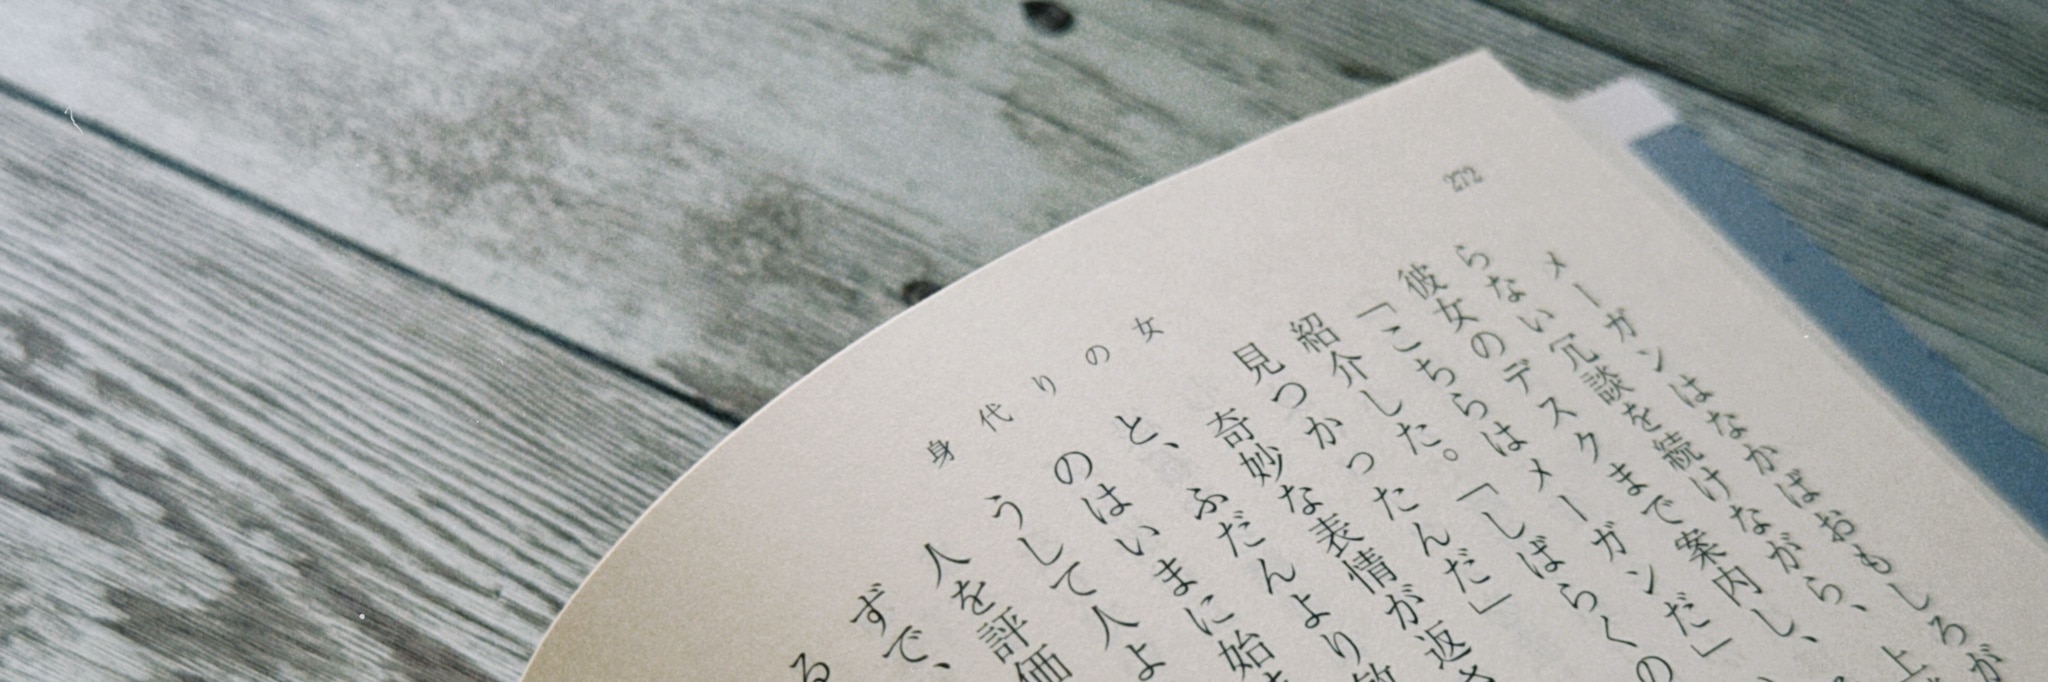 272
身代りの女
メーガンはなかばおもしろが
らない冗談を続けながら、上
彼女のデスクまで案内し、
「こちらはメーガンだ」
紹介した。「しばらくの
見つかったんだ」
奇妙な表情が返さ
と、ふだんより敏
のはいまに始ま
うして人よ
人を評価
ずで、
る